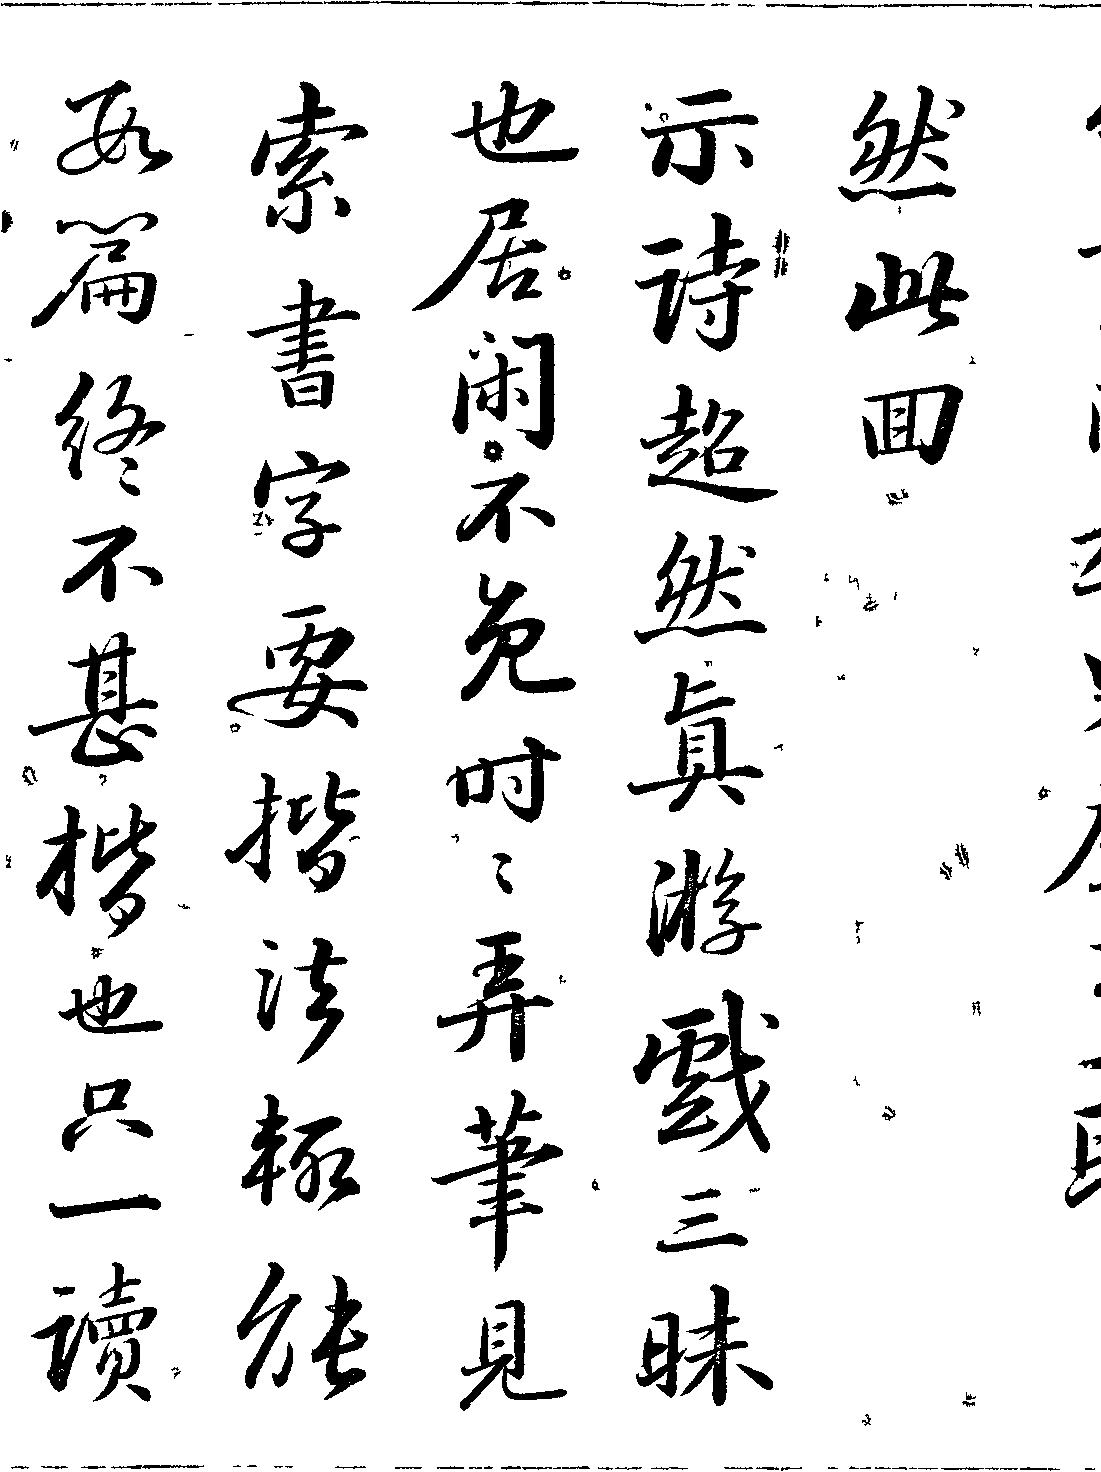 然此回
示詩超然真游戲三昧
也居閑不免時〻弄筆見
索書字要楷法輒
數篇終不甚楷也只一讀